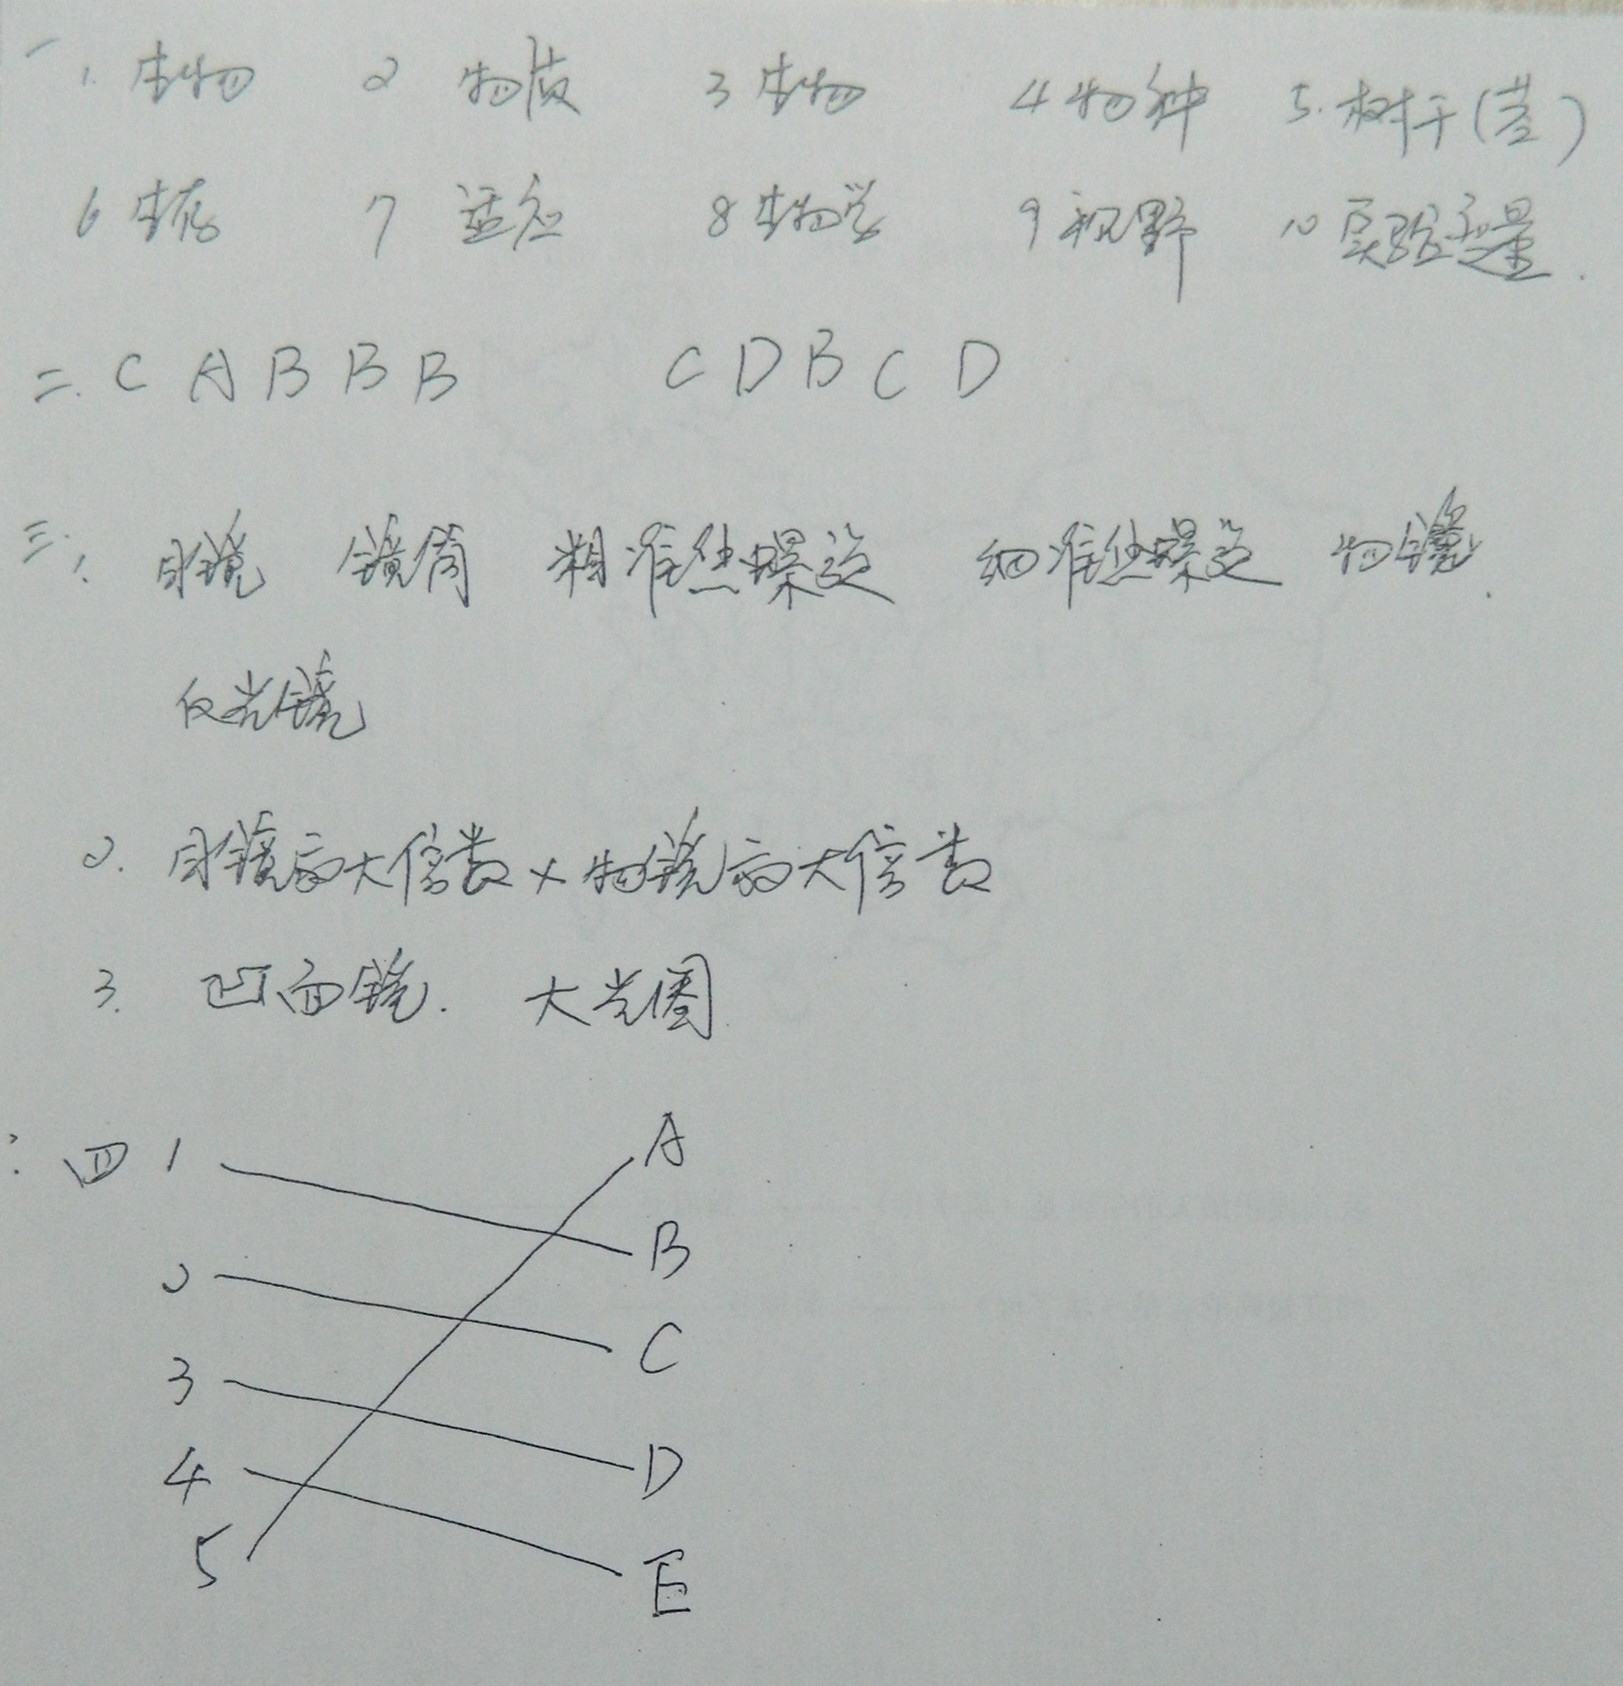 一 1. 生物 2 物质 3 生物 4 物种 5. 树干(茎)
6 生存 7 适应 8 生物学 9 视野 10 实验变量.
二. C A B B B C D B C D
三. 1. 目镜 镜筒 粗准焦螺旋 细准焦螺旋 物镜.
反光镜
2. 目镜放大倍数×物镜放大倍数
3. 凹面镜. 大光圈
四 1 A
B
2 C
3 D
4
5 E